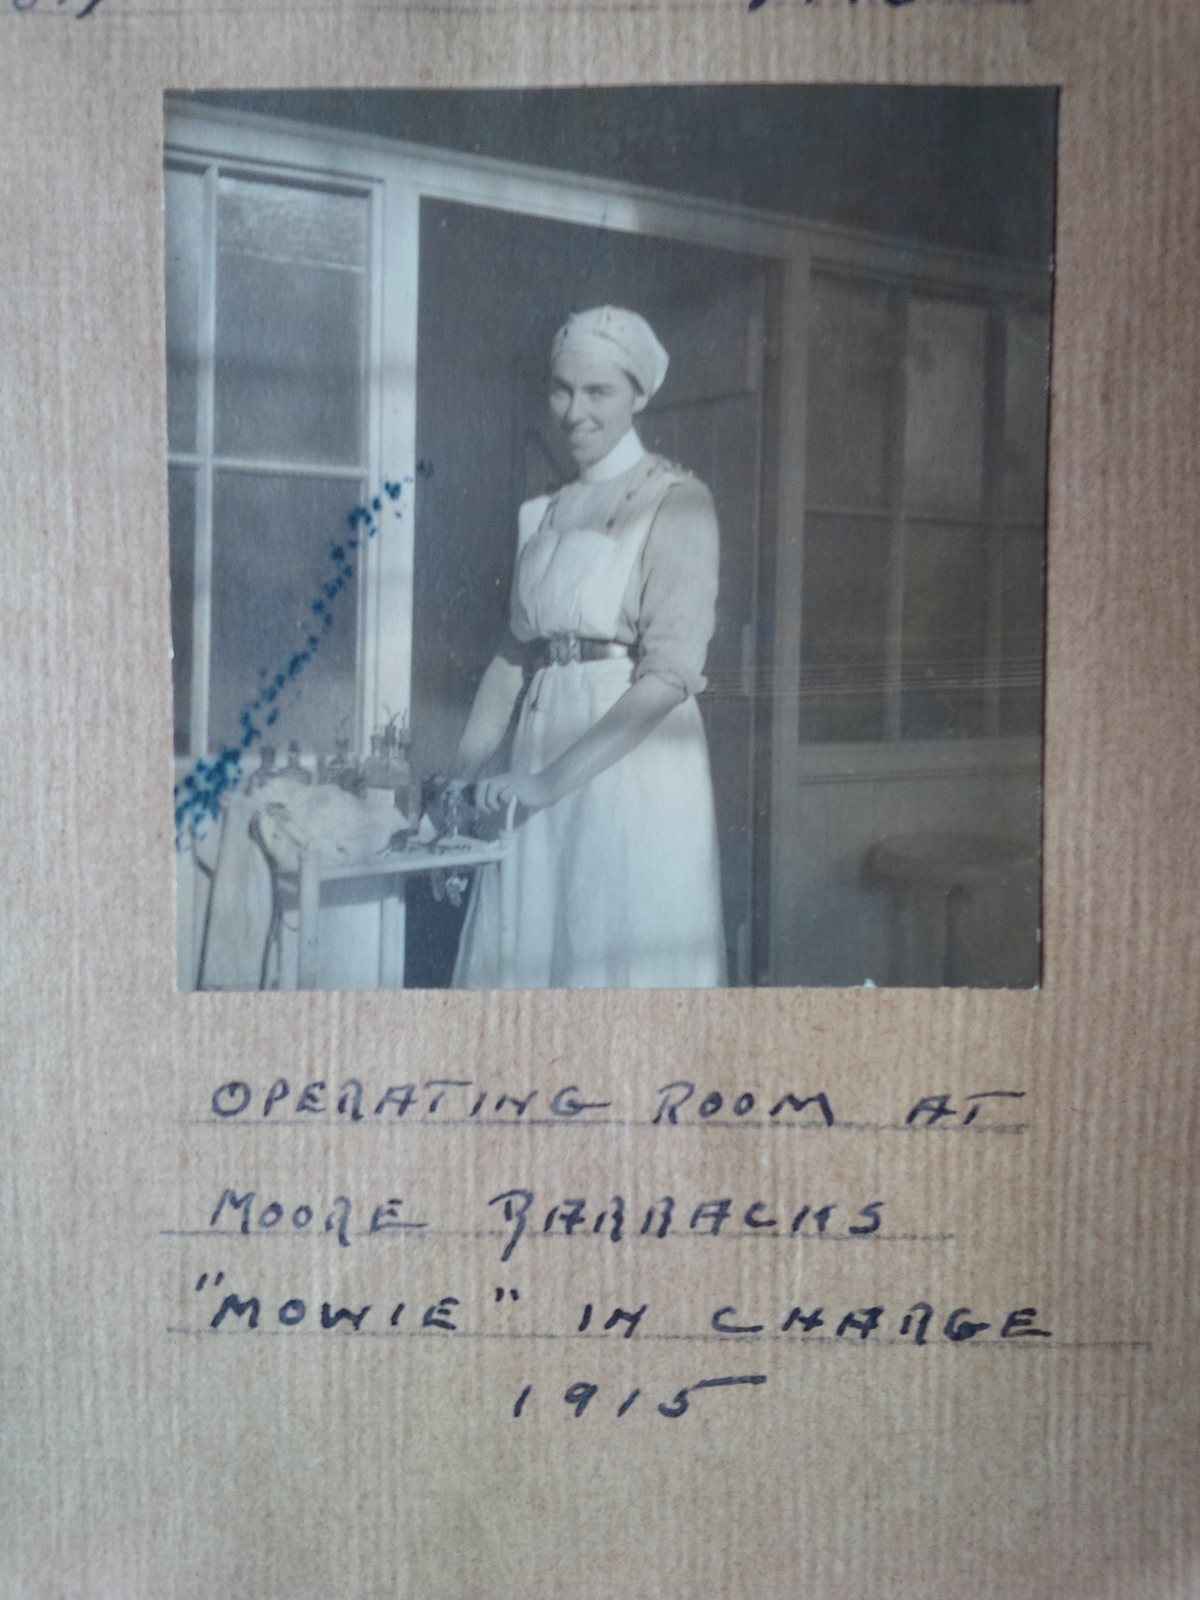 OPERATING ROOM AT
MOORE BARRACKS
"MOWIE" IN CHARGE
1915